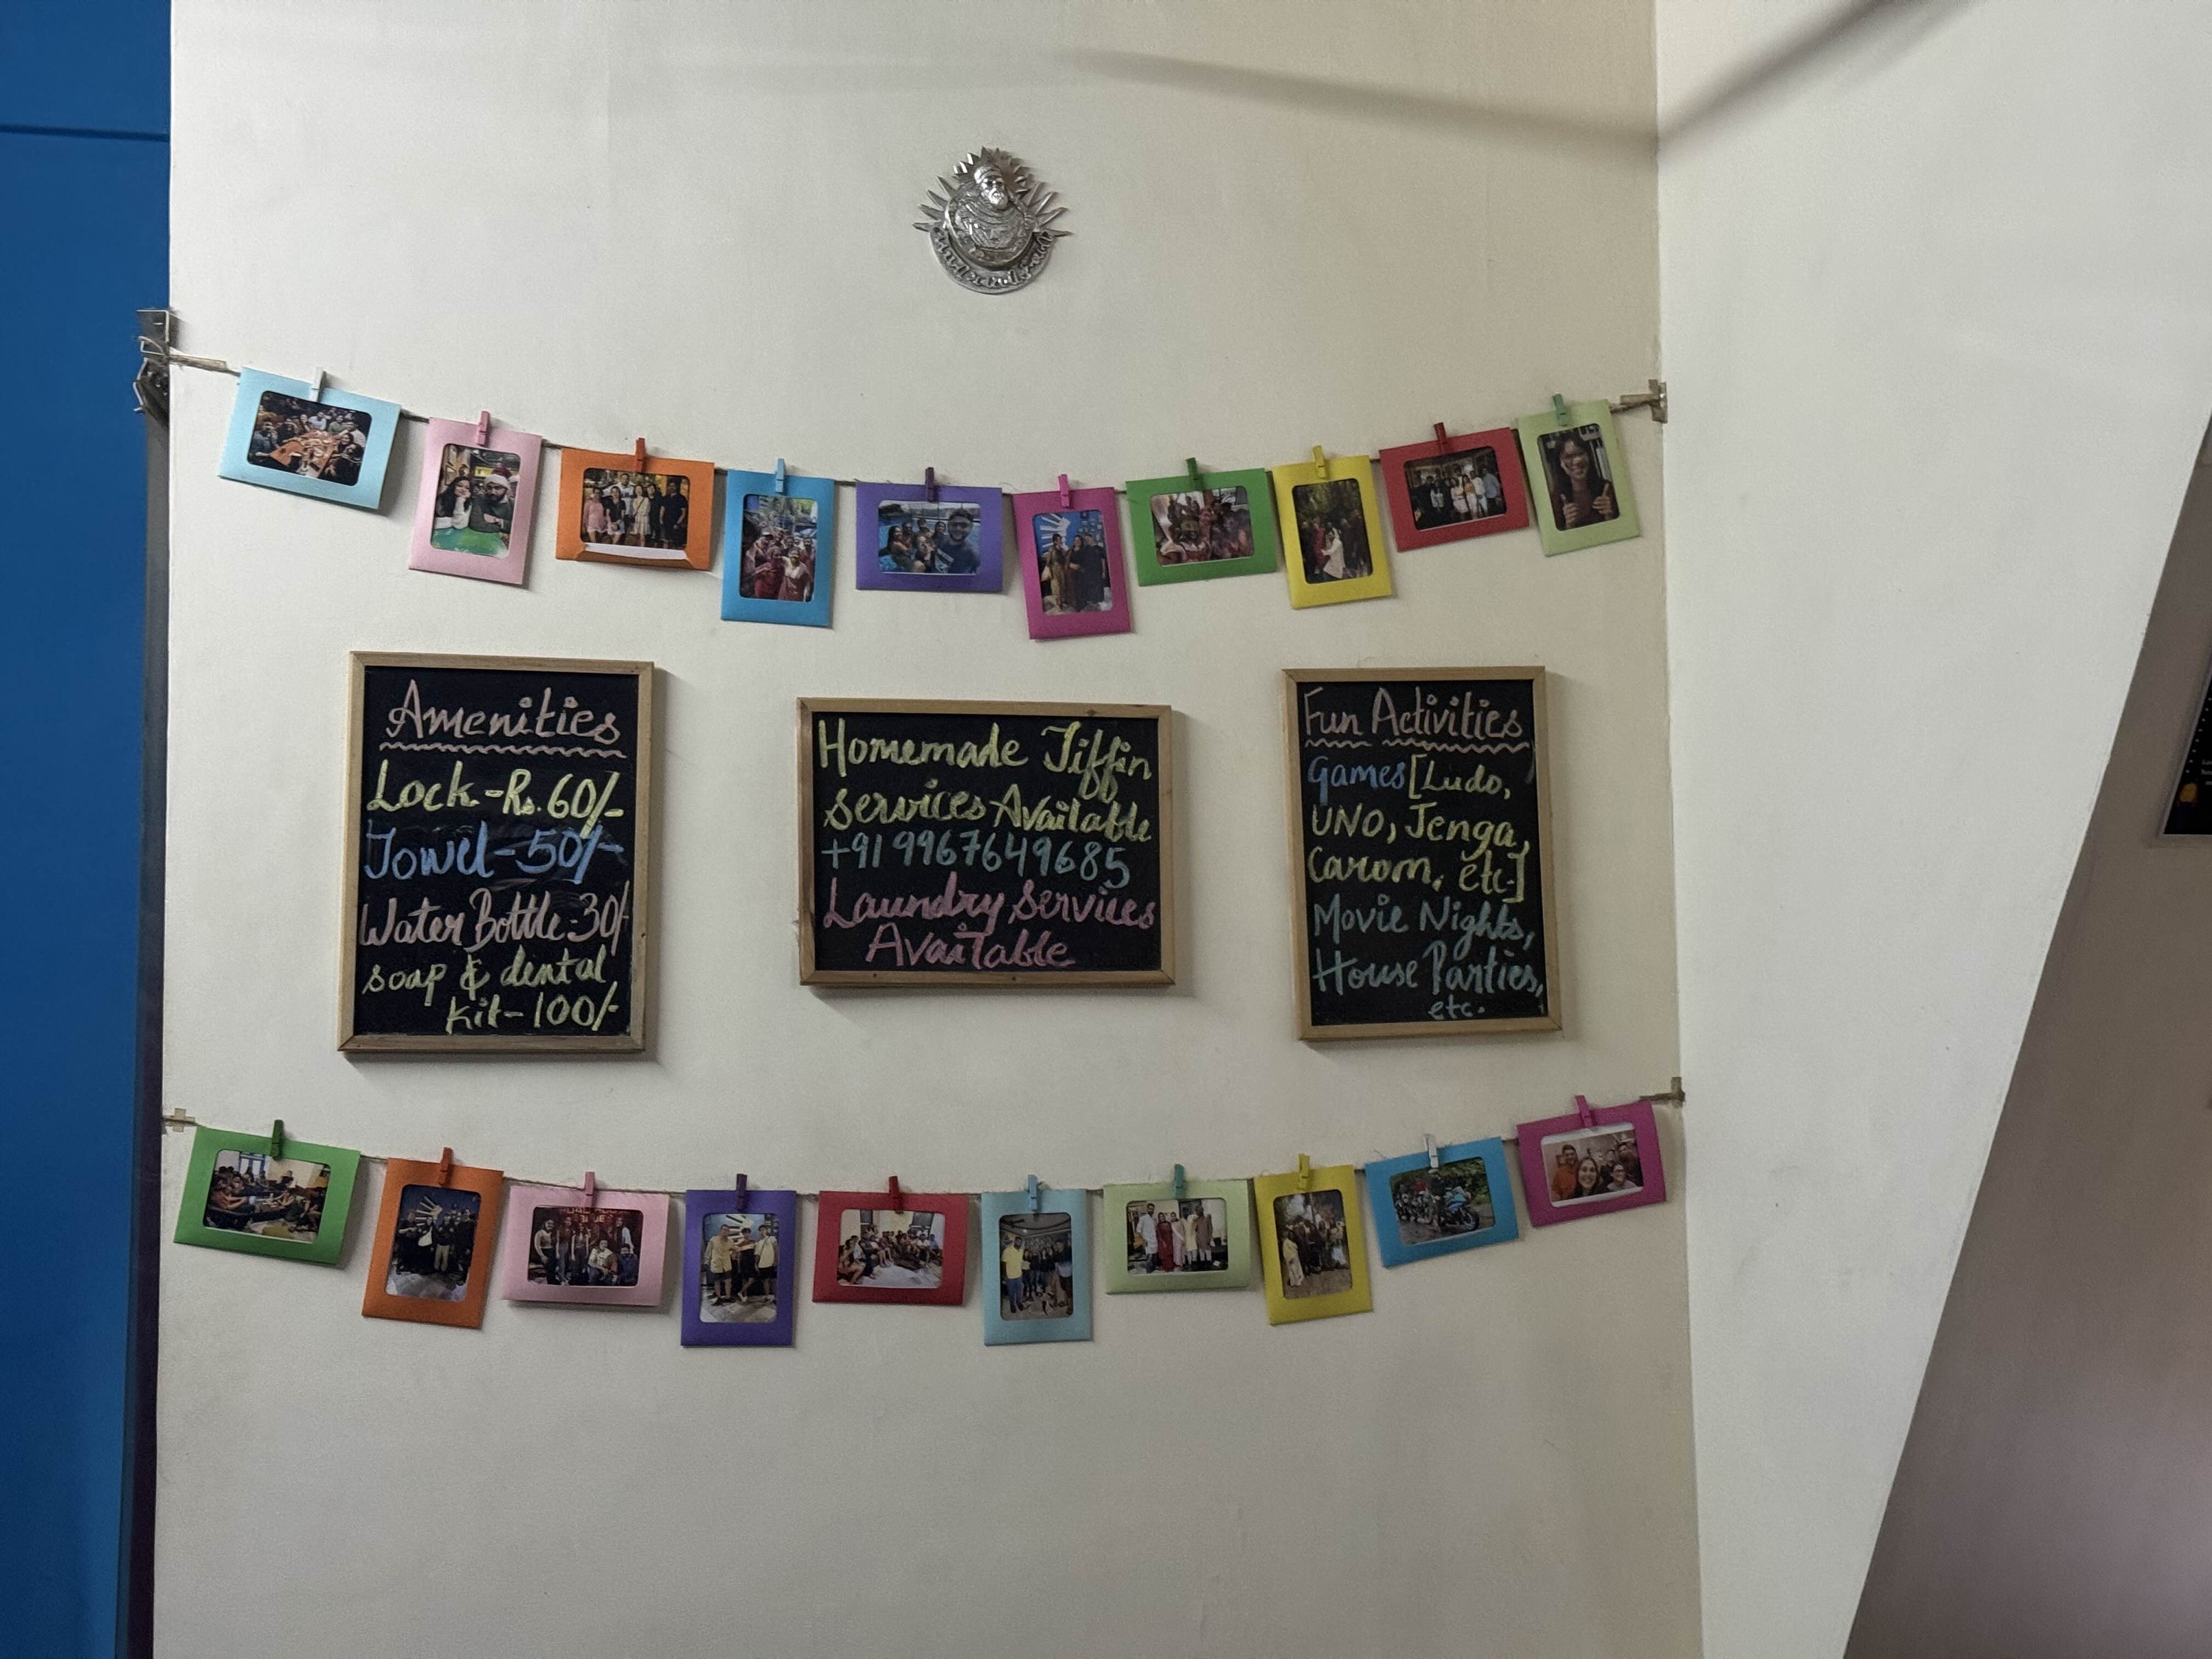 Amenities
Lock - Rs. 60/-
Towel - 50/-
Water Bottle - 30/
soap & dental
kit - 100/-
Homemade Tiffin
Services Available
+91 9967649685
Laundry Services
Available
Fun Activities
Games [Ludo,
UNO, Jenga,
Carom, etc.]
Movie Nights,
House Parties,
etc.